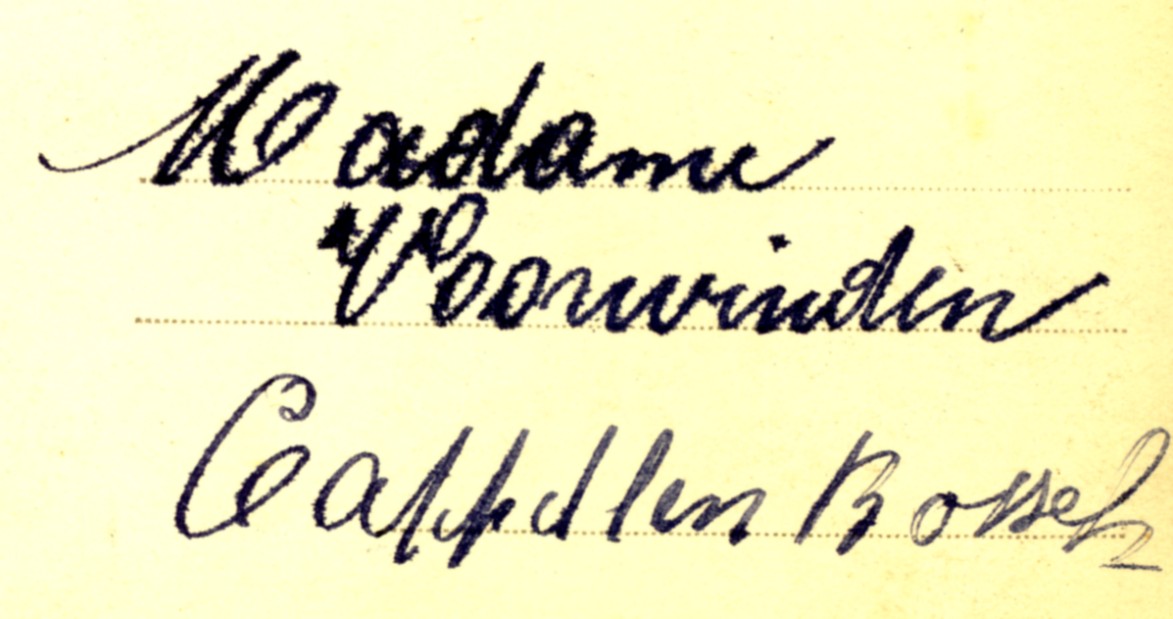 Madame
Voorwinden
Cappellen Bossch